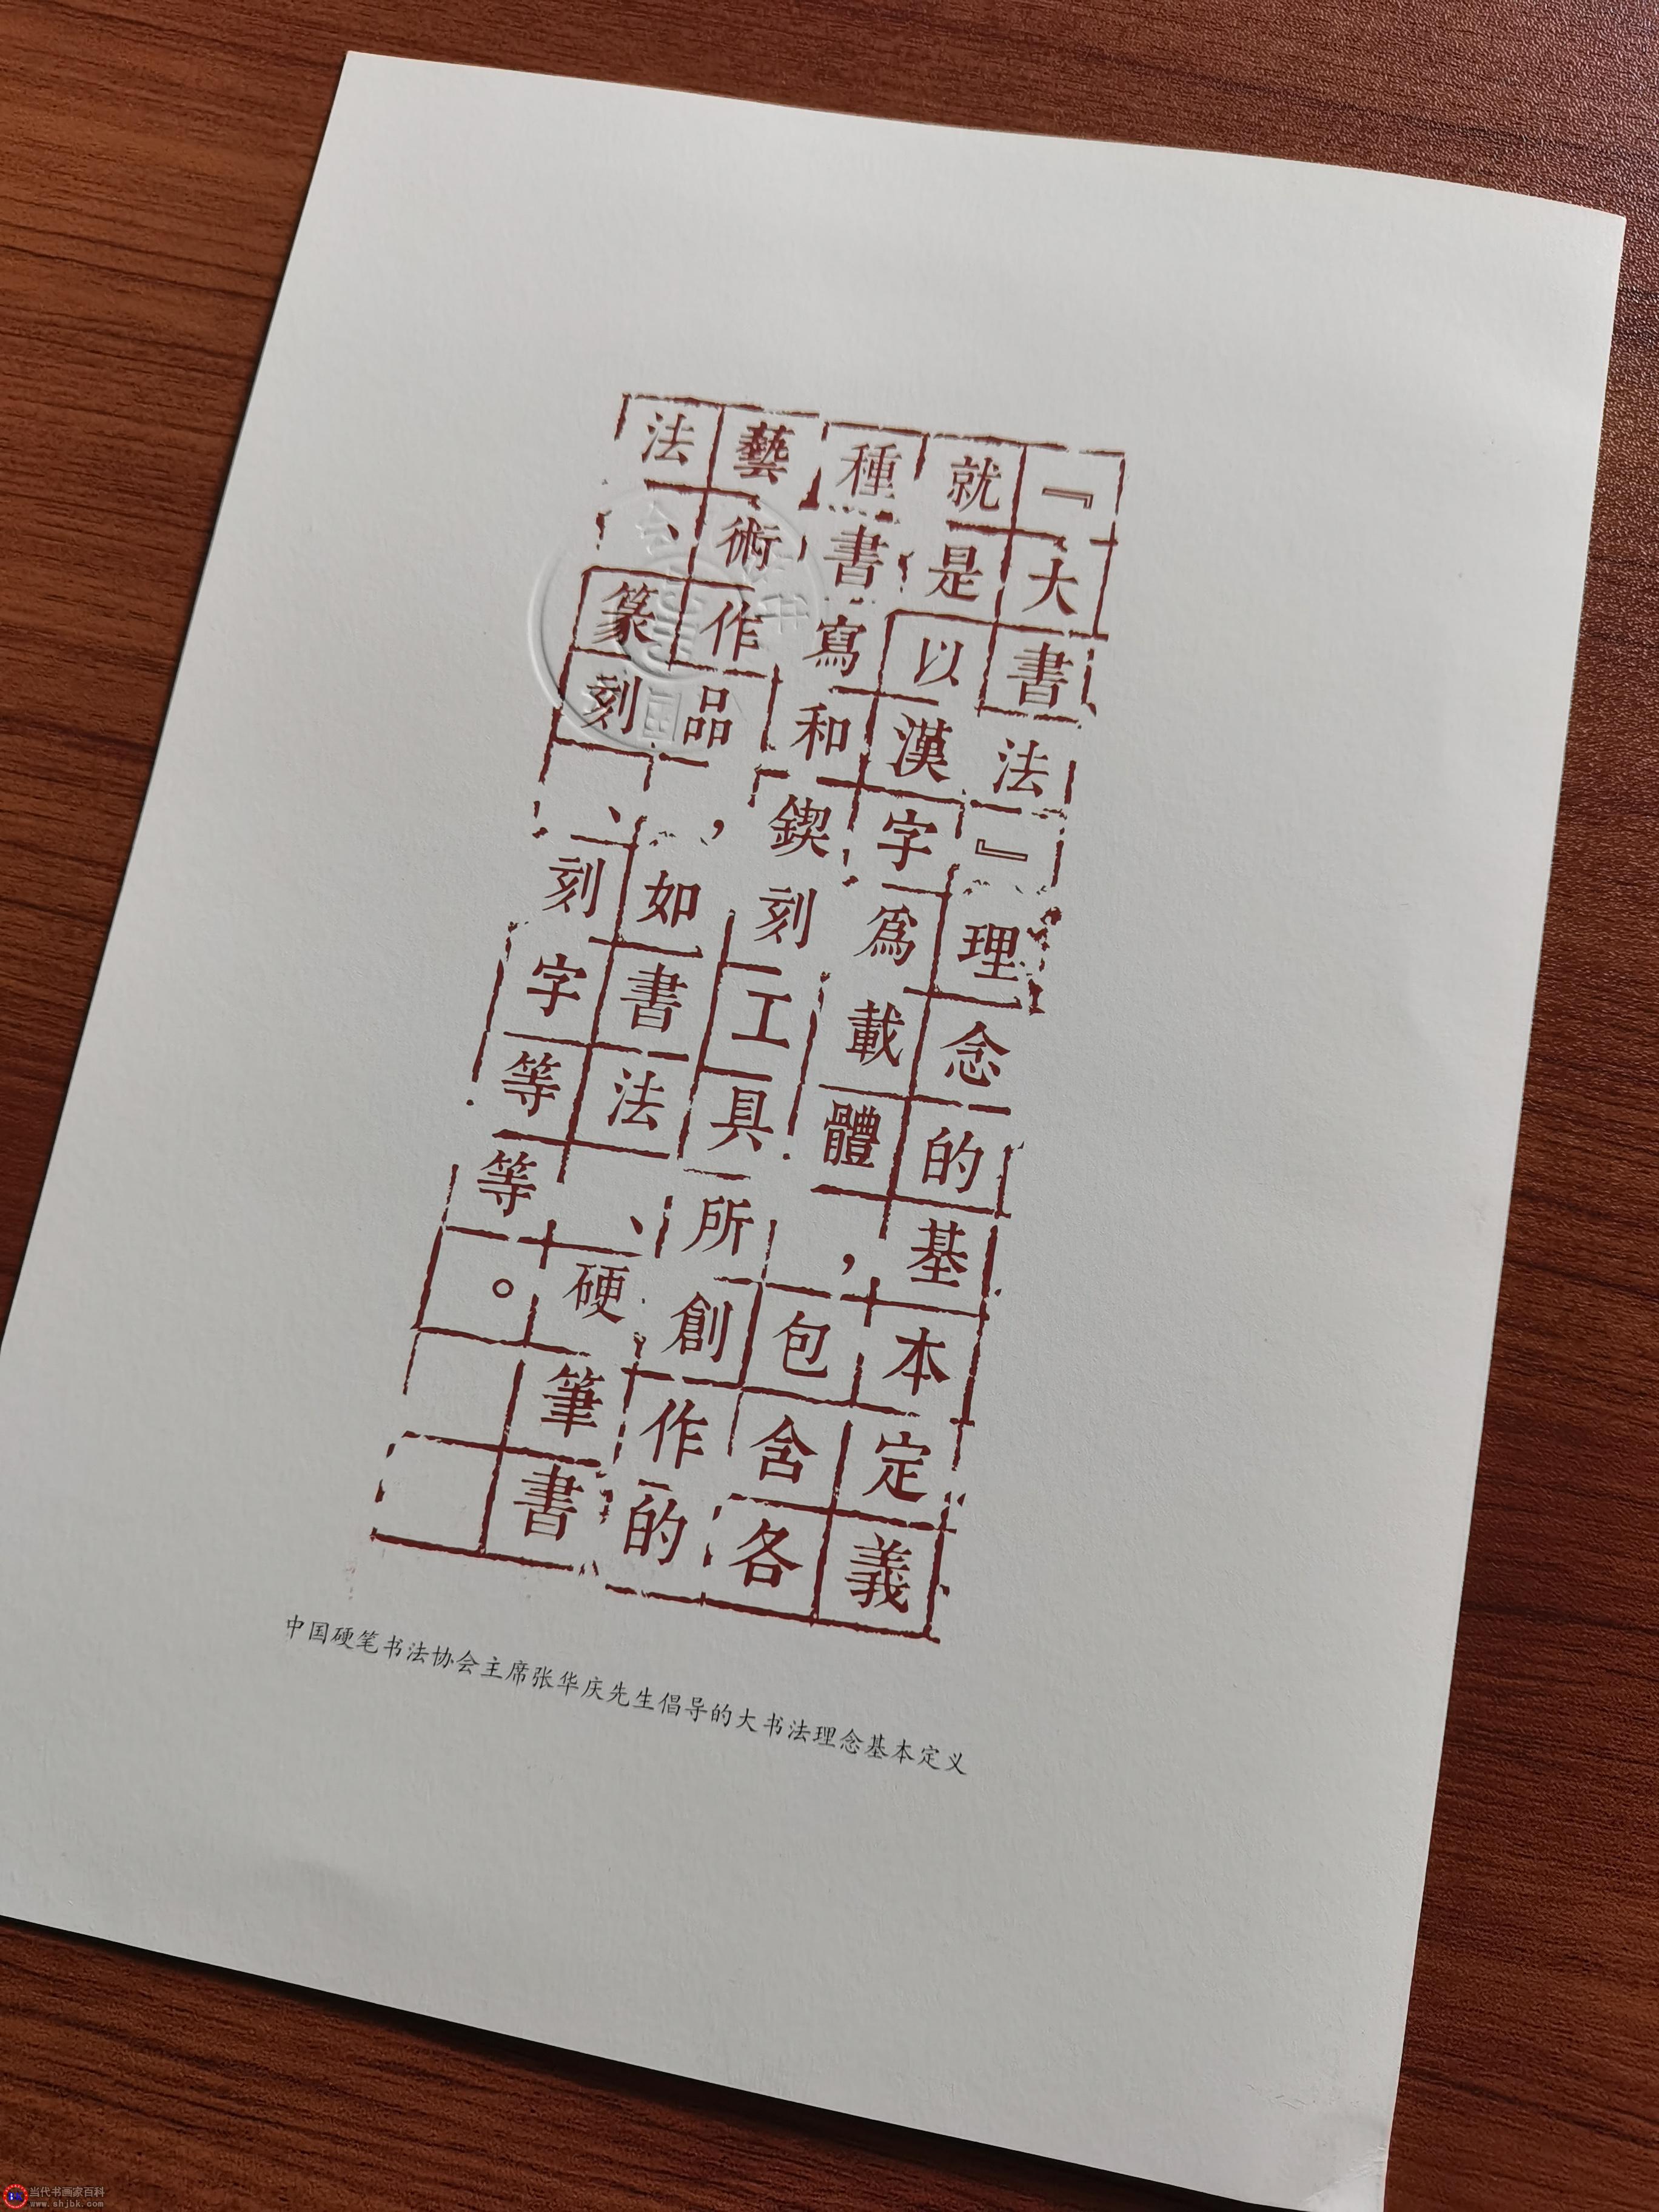 『大書法』理念的基本定義
就是以漢字爲載體，包含各
種書寫和鍥刻工具所創作的
藝術作品，如書法、硬筆書
法、篆刻、刻字等等。
中国硬笔书法协会主席张华庆先生倡导的大书法理念基本定义
当代书画家百科
www.shjbk.com